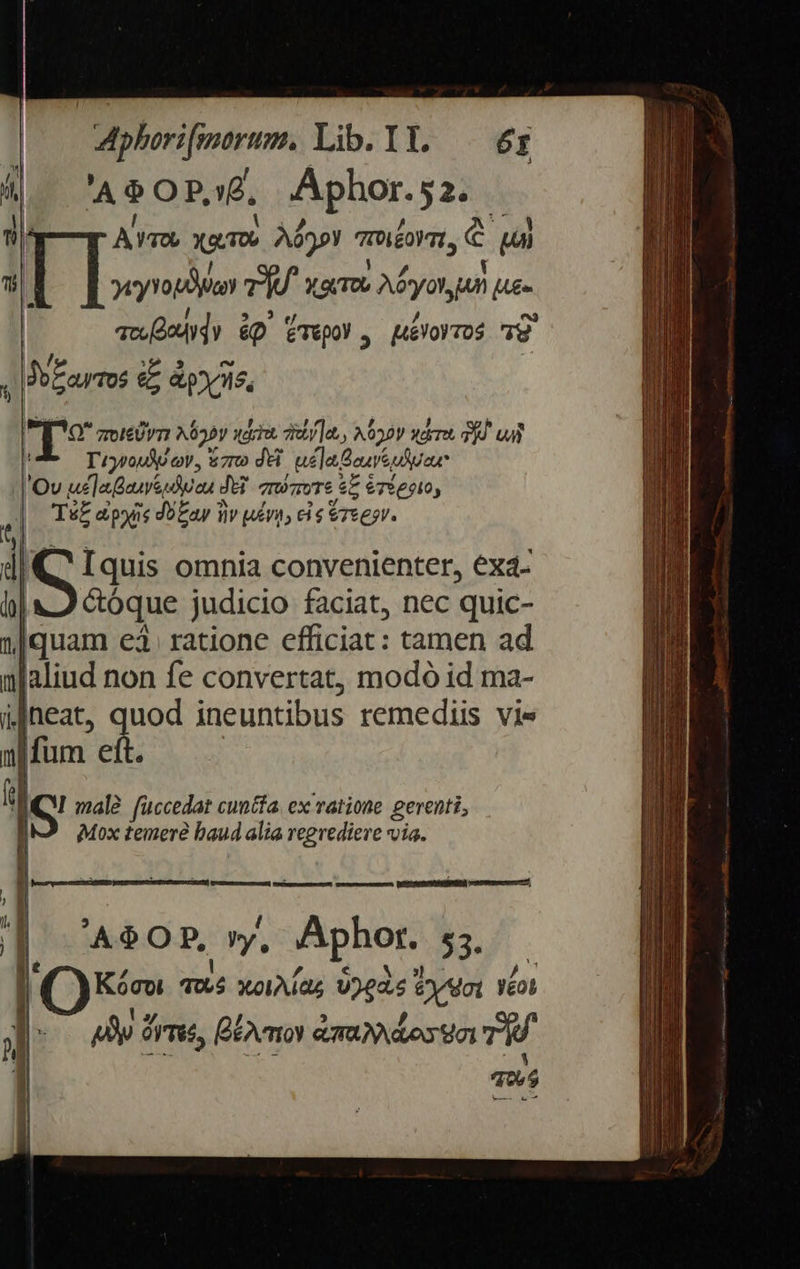 Aphoriſmorum. Lib. II. 61
ἈΦΟΡ. νβ΄. Aphor. 52.
Πάντα κατὰ λόγον ποιέοντι, ϗ μὴ
γιγνομένων τῶν κατὰ λόγον, μὴ με-
ταβαίνειν ἐφ᾽ ἕτερον, μένοντος τοῦ
δόξαντος ἐξ ἀρχῆς.
ΤΩ ποιεῦντι λόγον κάτα πάντα, λόγον κάτα τῶν μὴ
Γιγνομένων, οὕπω δεῖ μεταβαινέμεναι·
Οὐ μεταβαινέμεναι δεῖ πώποτε ἐξ ἑτέροιο,
Τοῦ ἐξ ἀρχῆς δόξαν ἢν μένῃ, εἰς ἕτερον.
SIquis omnia convenienter, exa-
ctóque judicio faciat, nec quic-
quam eâ ratione efficiat: tamen ad
aliud non ſe convertat, modò id ma-
neat, quod ineuntibus remediis vi-
ſum eſt.
SI malè ſuccedat cuncta ex ratione gerenti,
Mox temerè haud alia regrediere via.
ἈΦΟΡ. νγ΄. Aphor. 53.
ΟΚόσοι τὰς κοιλίας ὑγρὰς ἔχουσι νέοι
μὲν ὄντες, βέλτιον ἀπαλλάσσουσι τῶν
τὰς